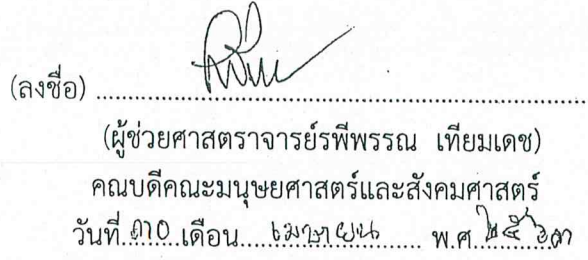 (ลงชื่อ) ........................................................
(ผู้ช่วยศาสตราจารย์รพีพรรณ เทียมเดช)
คณบดีคณะมนุษยศาสตร์และสังคมศาสตร์
วันที่..๓๐..เดือน....เมษายน.......... พ.ศ.๒๕๖๓